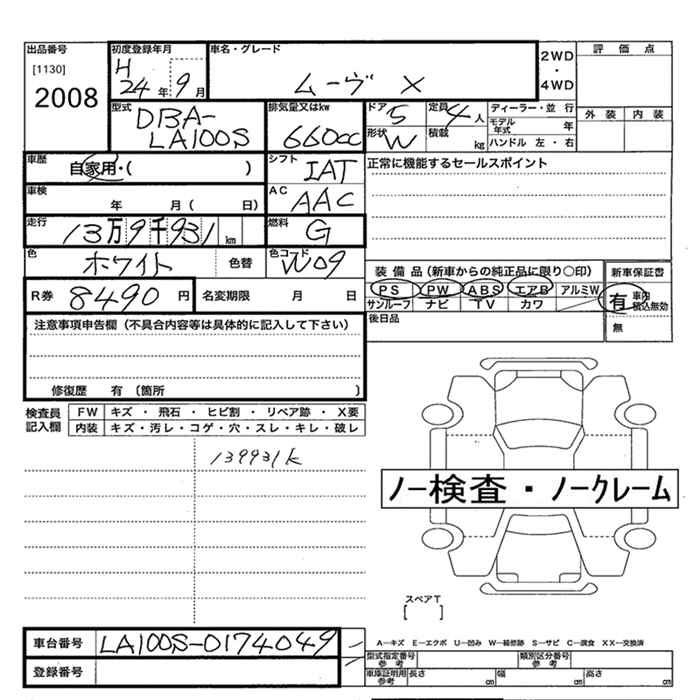 出品番号
[1130]
2008
初度登録年月
H
24年9月
車名・グレード
ムーヴ X
2WD
・
4WD
評価点
外装 内装
型式
DBA-
LA100S
排気量又はkw
660cc
ドア 5
形状 W
定員 4人
積載 kg
ディーラー・並行
モデル年式 年
ハンドル 左・右
車歴
自家用・( )
シフト
IAT
正常に機能するセールスポイント
車検
年 月( 日)
AC
AAC
走行
13万9千931km
燃料
G
色
ホワイト
色替
色コード
W09
R券 8490円
名変期限 月 日
装備品(新車からの純正品に限り○印)
PS PW ABS エアB アルミW
サンルーフ ナビ TV カワ
後日品
新車保証書
有 車内積込無効
無
注意事項申告欄(不具合内容等は具体的に記入して下さい)
修復歴 有 (箇所 )
検査員
記入欄
FW キズ・飛石・ヒビ割・リペア跡・X要
内装 キズ・汚レ・コゲ・穴・スレ・キレ・破レ
139931k
ノー検査・ノークレーム
スペアT
[ ]
車台番号 LA100S-0174049
登録番号
A-キズ E-エクボ U-凹み W-補修跡 S-サビ C-腐食 XX-交換済
型式指定番号
参考
類別区分番号
参考
車庫証明用
参考
長さ cm 幅 cm 高さ cm